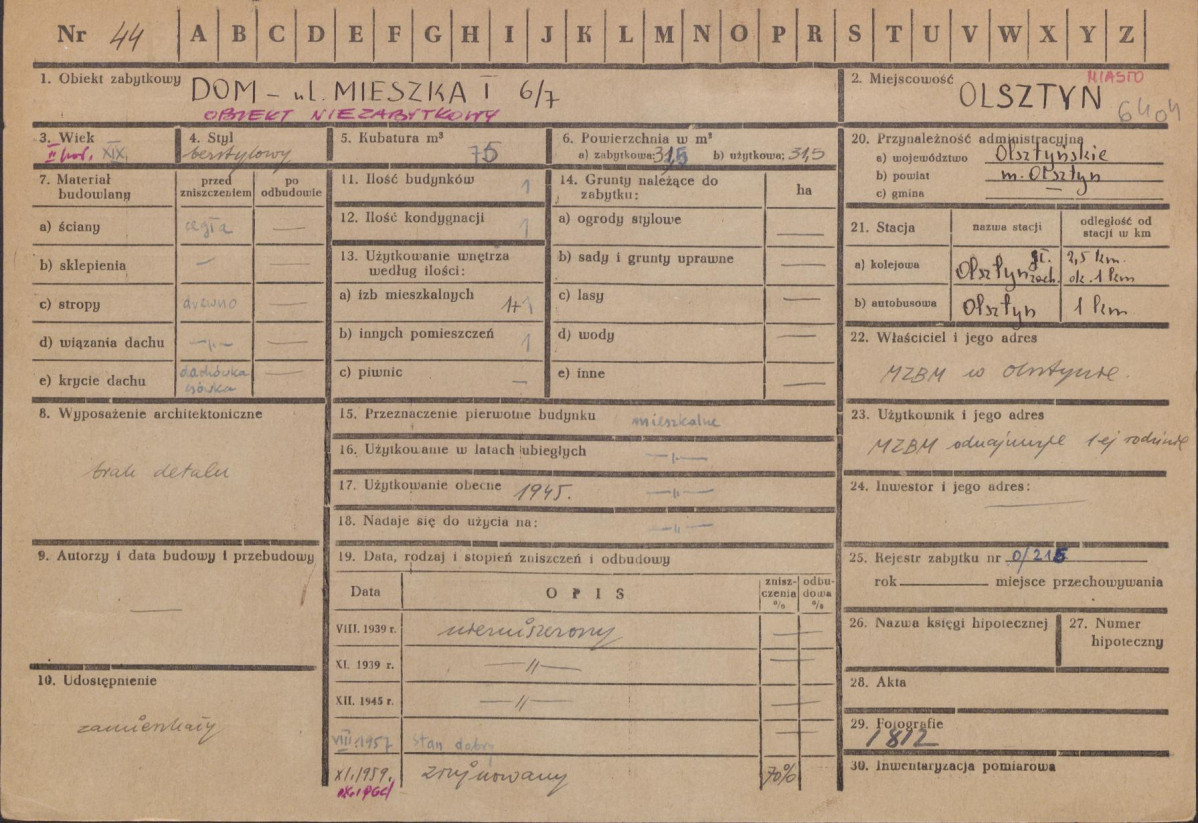 Nr 44 A B C D E F G H I J K L M N O P R S T U V W X Y Z
1. Obiekt zabytkowy DOM - ul. MIESZKA I 6/7
OBIEKT NIEZABYTKOWY
2. Miejscowość MIASTO
OLSZTYN 6404
3. Wiek
II poł. XIX.
4. Styl
bezstylowy
5. Kubatura m³
75
6. Powierzchnia w m²
a) zabytkowa: 31,5 b) użytkowa: 31,5
7. Materiał budowlany
przed zniszczeniem
po odbudowie
a) ściany cegła —
b) sklepienia — —
c) stropy drewno —
d) wiązania dachu —"— —
e) krycie dachu dachówka —
esówka
8. Wyposażenie architektoniczne
brak detalu
9. Autorzy i data budowy i przebudowy
—
10. Udostępnienie
zamieszkały
11. Ilość budynków 1
12. Ilość kondygnacji 1
13. Użytkowanie wnętrza
według ilości:
a) izb mieszkalnych 1+1
b) innych pomieszczeń 1
c) piwnic —
14. Grunty należące do
zabytku:
ha
a) ogrody stylowe —
b) sady i grunty uprawne —
c) lasy —
d) wody —
e) inne —
15. Przeznaczenie pierwotne budynku mieszkalne
16. Użytkowanie w latach ubiegłych —"—
17. Użytkowanie obecne 1945. —"—
18. Nadaje się do użycia na: —"—
19. Data, rodzaj i stopień zniszczeń i odbudowy
Data
OPIS
znisz-
czenia
%
odbu-
dowa
%
VIII. 1939 r. niezniszczony —
XI. 1939 r. —"— —
XII. 1945 r. —"— —
VIII.1957 stan dobry —
XI.1959. zrujnowany 70%
20. Przynależność administracyjna
a) województwo Olsztyńskie
b) powiat m. Olsztyn
c) gmina —
21. Stacja
nazwa stacji
odległość od
stacji w km
a) kolejowa Olsztyn gł. 2,5 km.
zach. ok. 1 km
b) autobusowa Olsztyn 1 km
22. Właściciel i jego adres
MZBM w Olsztynie.
23. Użytkownik i jego adres
MZBM odnajmuje 1-ej rodzinie
24. Inwestor i jego adres:
—
25. Rejestr zabytku nr 0/215
rok miejsce przechowywania
26. Nazwa księgi hipotecznej
27. Numer
hipoteczny
28. Akta
29. Fotografie
1812
30. Inwentaryzacja pomiarowa